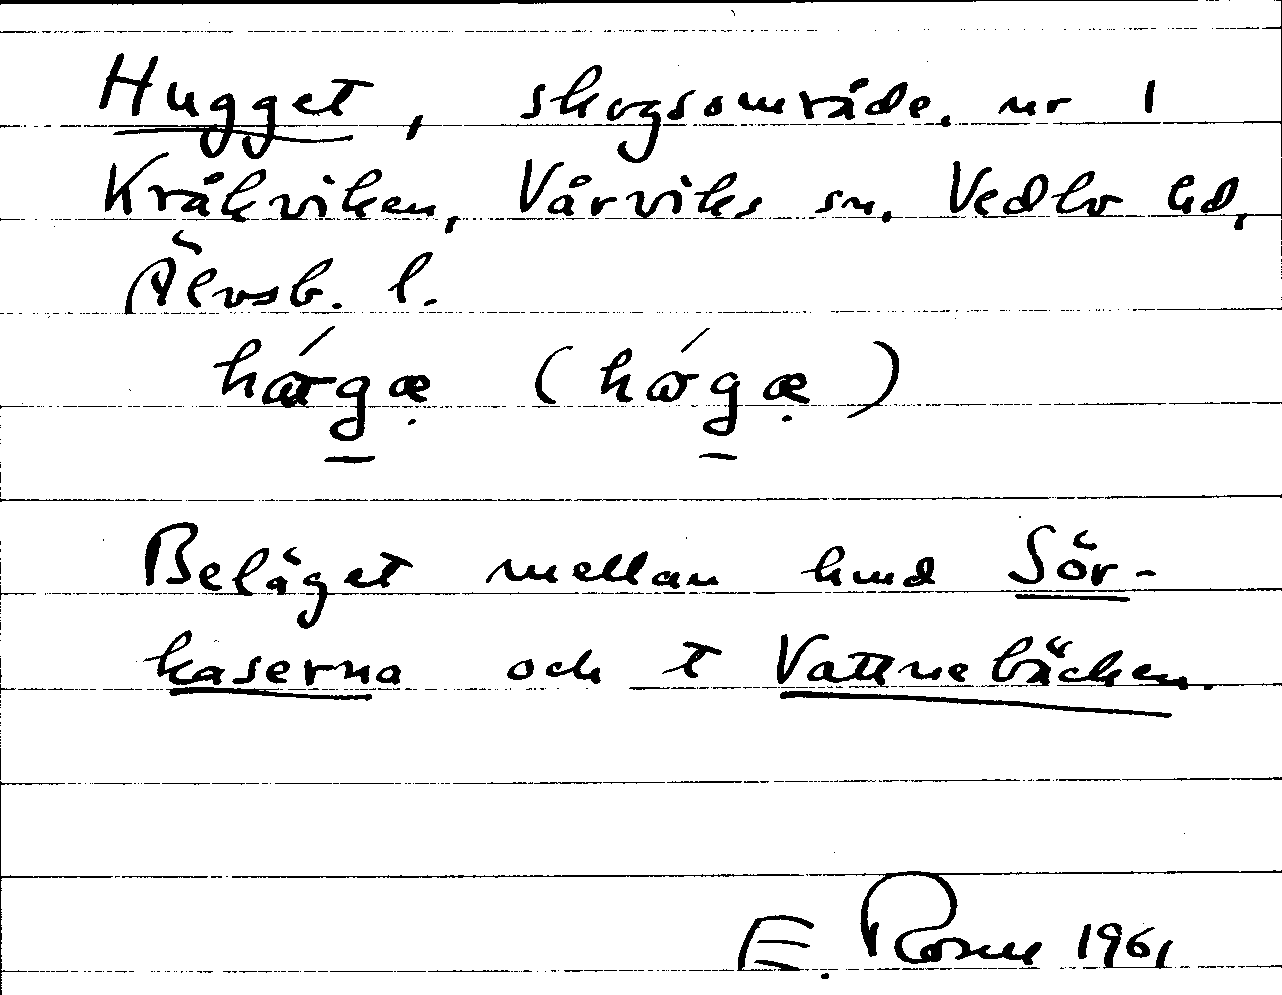 Hugget, skogsområde. nr 1
Kråkviken, Vårviks sn, Vedbo hd,
Älvsb. l.
Beläget mellan hmd Sör-
kaserna och t Vattnebäcken.
E. Rosén 1961